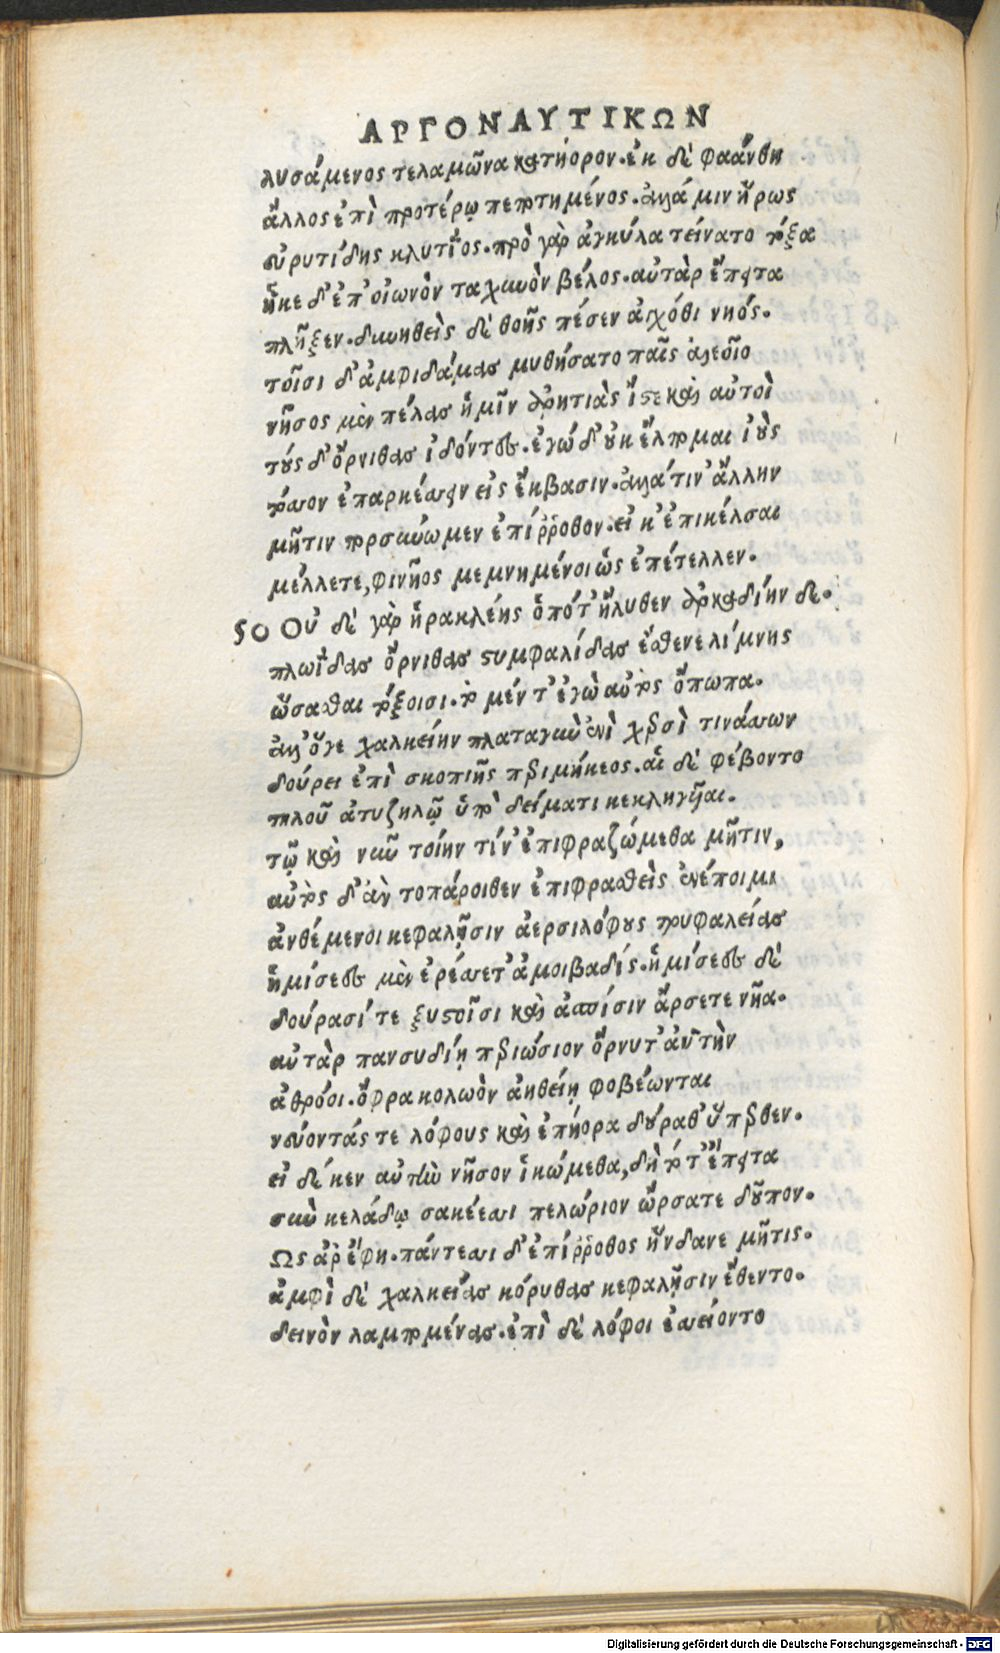 ΑΡΓΟΝΑΥΤΙΚΩΝ
λυσάμενος τελαμῶνα κατήορον. ἐκ δὲ φαάνθη
ἄλλος ἐπὶ προτέρῳ πεποτημένος. ἀλλά μιν ἥρως
εὐρυτίδης κλυτίος. πρὸ γὰρ ἀγκύλα τείνατο τόξα
ἧκε δ' ἐπ' οἰωνὸν ταχινὸν βέλος. αὐτὰρ ἔπειτα
πλῆξεν. δινηθεὶς δὲ θοῆς πέσεν ἀγχόθι νηός.
τοῖσι δ' ἀμφιδάμας μυθήσατο παῖς ἀλεοῖο
νῆσος μὲν πέλας ἡμῖν ἀρητιὰς ἴστε καὶ αὐτοὶ
τούς δ' ὄρνιθας ἰδόντες. ἐγώ δ' οὐκ ἔλπομαι ἰοὺς
τόσσον ἐπαρκέσσειν εἰς ἔκβασιν. ἀλλά τιν' ἄλλην
μῆτιν πορσαύωμεν ἐπίῤῥοθον. εἴ κ' ἐπικέλσαι
μέλλετε, φινῆος μεμνημένοι ὡς ἐπέτελλεν.
50 Οὐ δὲ γὰρ ἡρακλέης ὁπότ' ἤλυθεν ἀρκαδίην δε.
πλωΐδας ὄρνιθας στυμφαλίδας ἔσθενε λίμνης
ὤσασθαι τόξοισι. τὸ μέν τ' ἐγὼ αὐτὸς ὄπωπα.
ἀλλ' ὅγε χαλκείην πλαταγὴν ἐνὶ χερσὶ τινάσσων
δούρει ἐπὶ σκοπιῆς περιμήκεος. αἱ δὲ φέβοντο
τηλοῦ ἀτυζηλῷ ὑπὸ δείματι κεκληγῆαι.
τῷ καὶ νῦν τοίην τίν' ἐπιφραζώμεθα μῆτιν,
αὐτὸς δ' ἂν τοπάροιθεν ἐπιφρασθεὶς ἐνέποιμι
ἀνθέμενοι κεφαλῇσιν ἀερσιλόφους τρυφαλείας
ἡμίσεες μὲν ἐρέσσετ' ἀμοιβαδίς. ἡμίσεες δὲ
δούρασί τε ξυστοῖσι καὶ ἀσπίσιν ἄρσετε νῆα.
αὐτὰρ πανσυδίῃ περιώσιον ὄρνυτ' ἀϋτὴν
ἀθρόοι. ὄφρα κολωὸν ἀηθείῃ φοβέωνται
νεύοντάς τε λόφους καὶ ἐπήορα δούραθ' ὕπερθεν.
εἰ δέ κεν αὐτὴν νῆσον ἱκώμεθα, δὴ τότ' ἔπειτα
σὺν κελάδῳ σακέεσσι πελώριον ὤρσατε δοῦπον.
Ως ἄρ' ἔφη. πάντεσσι δ' ἐπίῤῥοθος ἥνδανε μῆτις.
ἀμφὶ δὲ χαλκείας κόρυθας κεφαλῇσιν ἔθεντο.
δεινὸν λαμπομένας. ἐπὶ δὲ λόφοι ἐσσείοντο